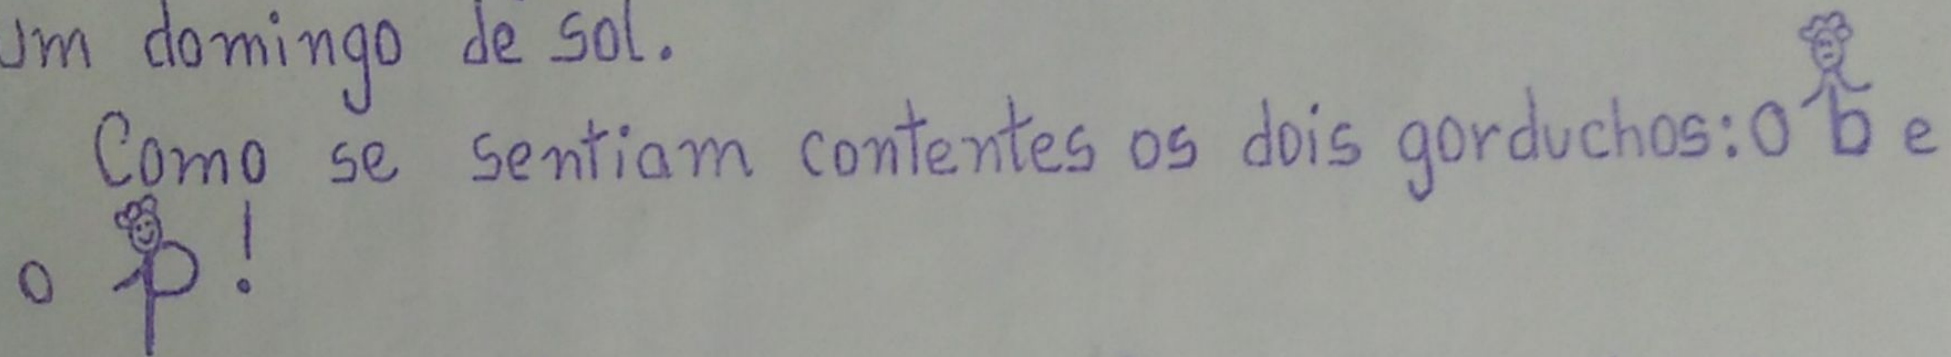 um domingo de sol.
Como se sentiam contentes os dois gorduchos: o b e
o p!